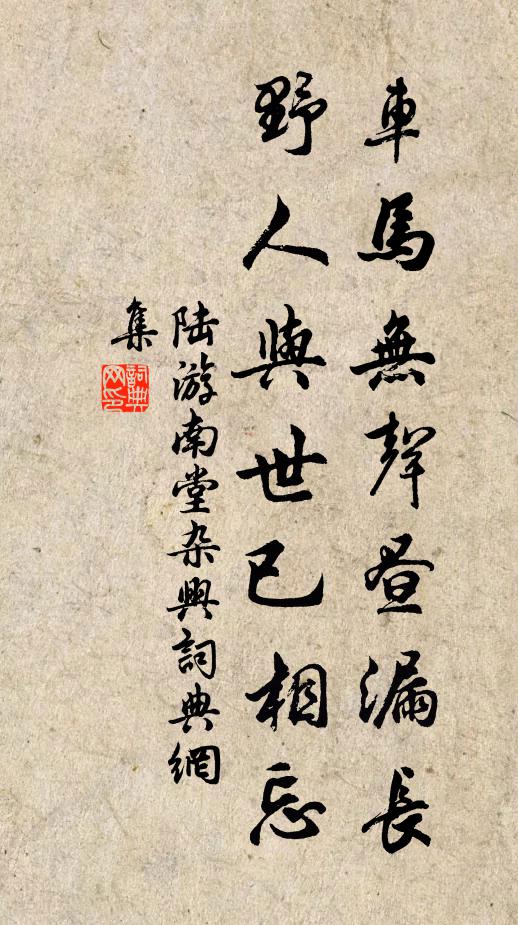 車馬無聲昼漏長
野人與世已相忘
陆游南堂杂興詞典網
集
詞典
网印